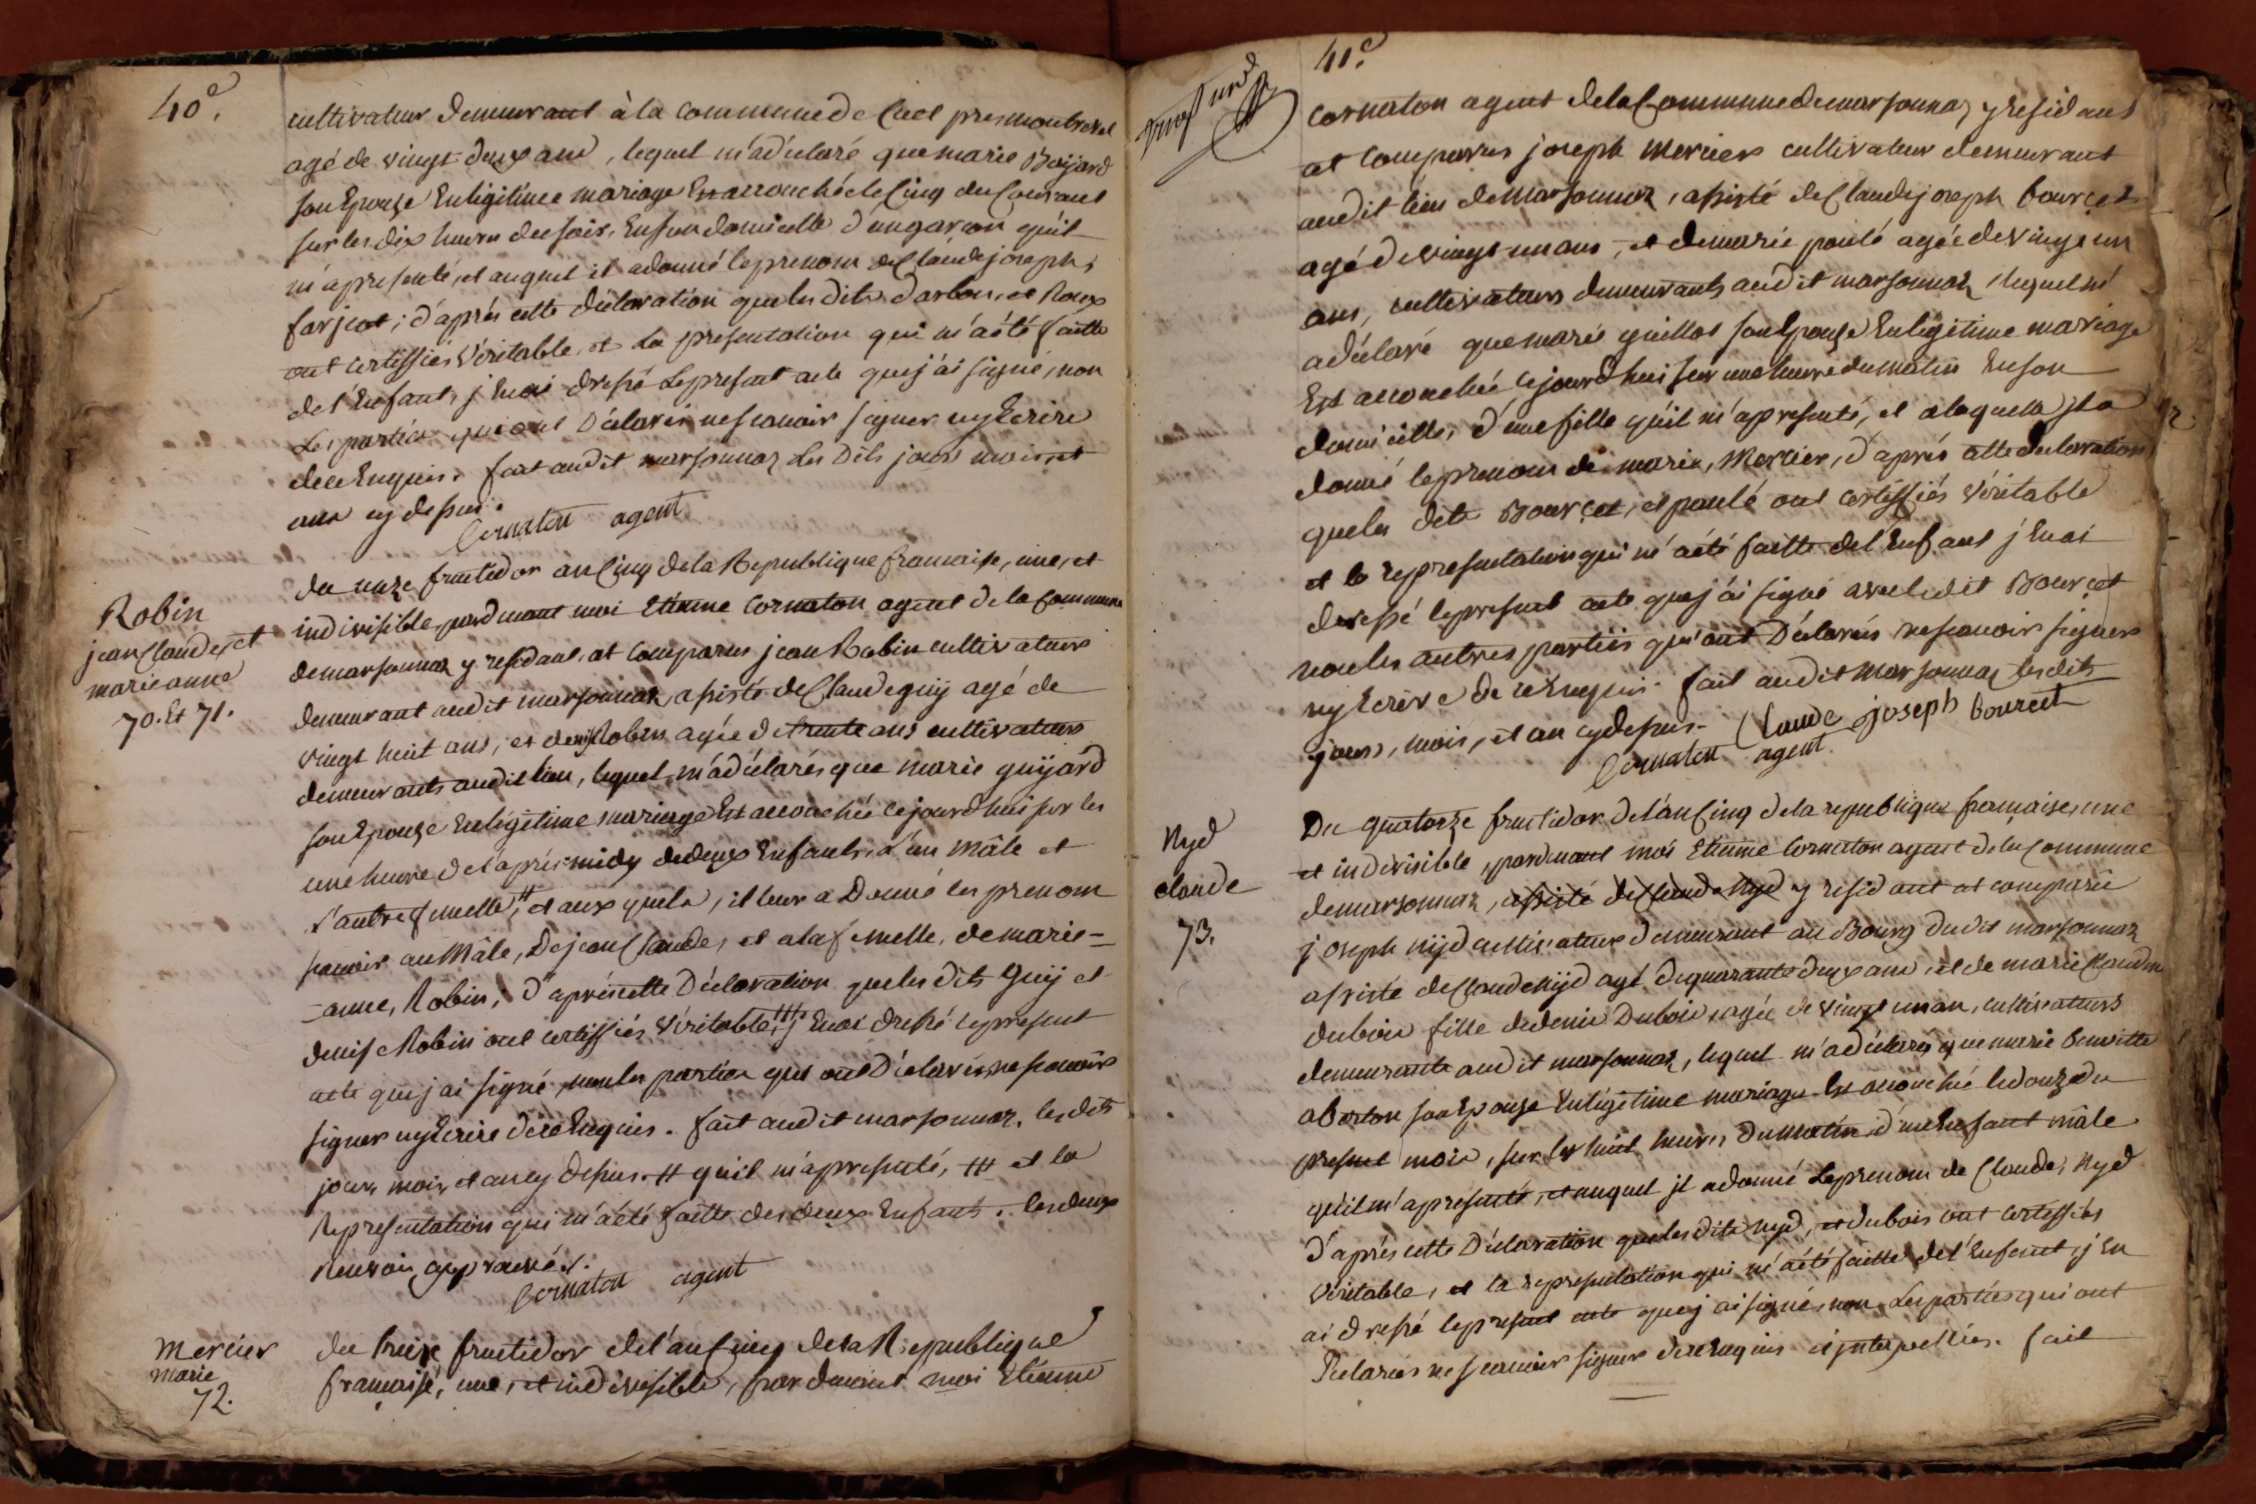 40e.
cultivateur demeurant à la commune de Cuet pres montrevel
agé de vingt deux ans, lequel m'a déclaré que marie Boijard
son Epouze En légitime mariage Est accouchée le Cinq du Courant
sur les dix heures du soir, En son domicille d'un garçon qu'il
m'a presenté, et auquel il a donné le prenom de Claude joseph,
farjeot; d'aprés cette déclaration que les dits darbon, et Roux
ont certiffiés Véritable, et la présentation qui m'a été faitte
de l'Enfant, j'En ai dressé le present acte que j'ai signé, non
Les parties qui ont Déclarés ne scavoir signer ny Ecrire
de ce Enquis. fait audit marsonnaz Les Dits jour mois et
ans cy dessus.
Cornaton agent
Robin
jean Claude, et
marie anne
70. Et 71.
du onze fructidor an Cinq de la Republique francaise, une, et
indivisible, pardevant moi Etienne Cornaton agent de la Commune
de marsonnaz y residant, at comparus jean Robin cultivateur
demeurant audit marsonnaz, assisté de Claude guij agé de
vingt huit ans, et denise Robin agée de trente ans cultivateurs
demeurants audit lieu, lequel m'a déclarés que marie guijard
son Epouze En légitime mariage Est accouchée ce jourd'hui sur les
une heure de l'aprés midy de deux Enfants, L'un mâle et
l'autre femelle, # et aux quels, il leur a Donné les prenom
scavoir au Mâle, De jean Claude, et a la femelle, de marie=
=anne, Robin; d'aprés cette Déclaration que les dits guij et
denise Robin ont certiffiés Véritable, ## j'En ai dressé le present
acte que j'ai signé, non les parties qui ont Déclarés ne scavoir
signer ny Ecrire de ce Enquis. fait audit marsonnaz, les dits
jour, mois, et an cy dessus. # qu'il m'a presenté, ## et la
Representation qui m'a été faitte des deux Enfants. les deux
Renvois approuvés.
Cornaton agent
Mercier
marie
72.
du treize fructidor de l'an Cinq de la Republique
francaise, une, et indivisible, pardevant moi Etienne
41e.
Cornaton agent de la Commune de marsonnaz y residant
at Comparus joseph Mercier cultivateur demeurant
audit lieu de Marsonnaz, assisté de Claude joseph bourcet
agé de vingt un ans, et de marie poulé agée de vingt un
ans, cultivateurs demeurants audit marsonnaz, lequel m'
a déclaré que marie guillot son Epouze En légitime mariage
Est accouchée ce jourd'hui sur une heure du matin En son
domicille, d'une fille qu'il m'a presenté, et a laquelle jl a
donné le prenom de marie, Mercier, d'aprés cette declaration
que les dits Bourcet, et poulé ont certiffiés Véritable
et la representation qui m'a été faitte de l'Enfant j'En ai
dressé le present acte que j'ai signé avec le dit Bourcet
non les autres parties qui ont Déclarés ne scavoir signer
ny Ecrire de ce Enquis. fait audit Marsonnaz les dits
jours, mois, et an cy dessus. Claude joseph bourcet
Cornaton agent
Nyd
claude
73.
Du quatorze fructidor de l'an Cinq de la republique francaise, une
et indivisible, pardevant moi Etienne Cornaton agent de la Commune
de marsonnaz, assisté de Claude Nyd y residant at comparu
joseph nijd cultivateur demeurant au Bourg dudit marsonnaz
assisté de Claude Nijd agé de quarante deux ans, et de marie Claudine
dubois fille de denis Dubois, agée de vingt un an, cultivateurs
demeurants audit marsonnaz, lequel m'a déclarés que marie benoitte
aberton son Epouze En légitime mariage Est accouchée le douze du
present mois, sur les huit heures du matin d'un Enfant mâle
qu'il m'a presenté, et auquel jl a donné Le prenom de Claude, Nyd
d'aprés cette Déclaration que les dits nyd, et dubois ont certiffiés
Véritable, et la representation qui m'a été faitte de l'Enfant, j'En
ai dressé le present acte que j'ai signé, non Les parties qui ont
Declarés ne scavoir signer de ce Enquis et jnterpellées. fait